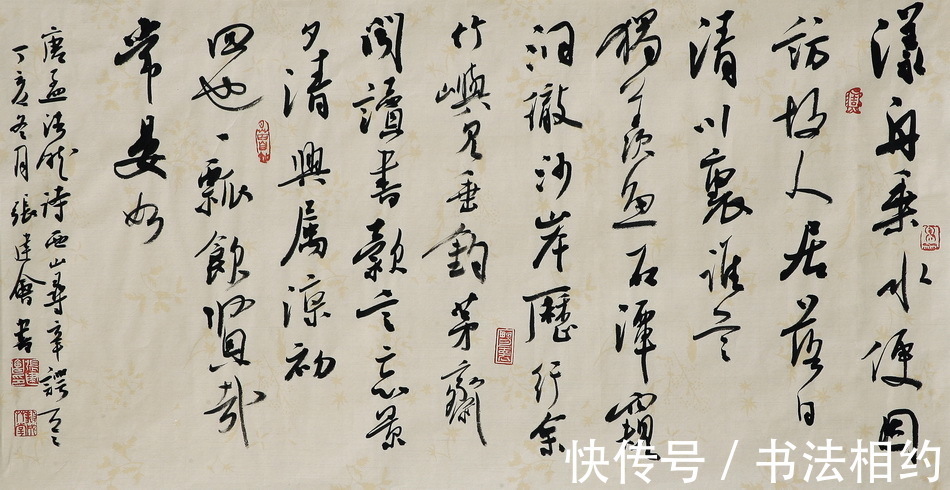 漾舟乘水便因
訪故人居落日
清川裏誰言
獨羨魚石潭窺
洞徹沙岸歷行余
竹嶼見垂釣茅齋
聞讀書款言忘景
夕清興屬涼初
回也一瓢飲賢哉
常晏如
唐孟浩然詩西山尋辛諤
丁亥冬月張建會書
快传号 / 书法相约